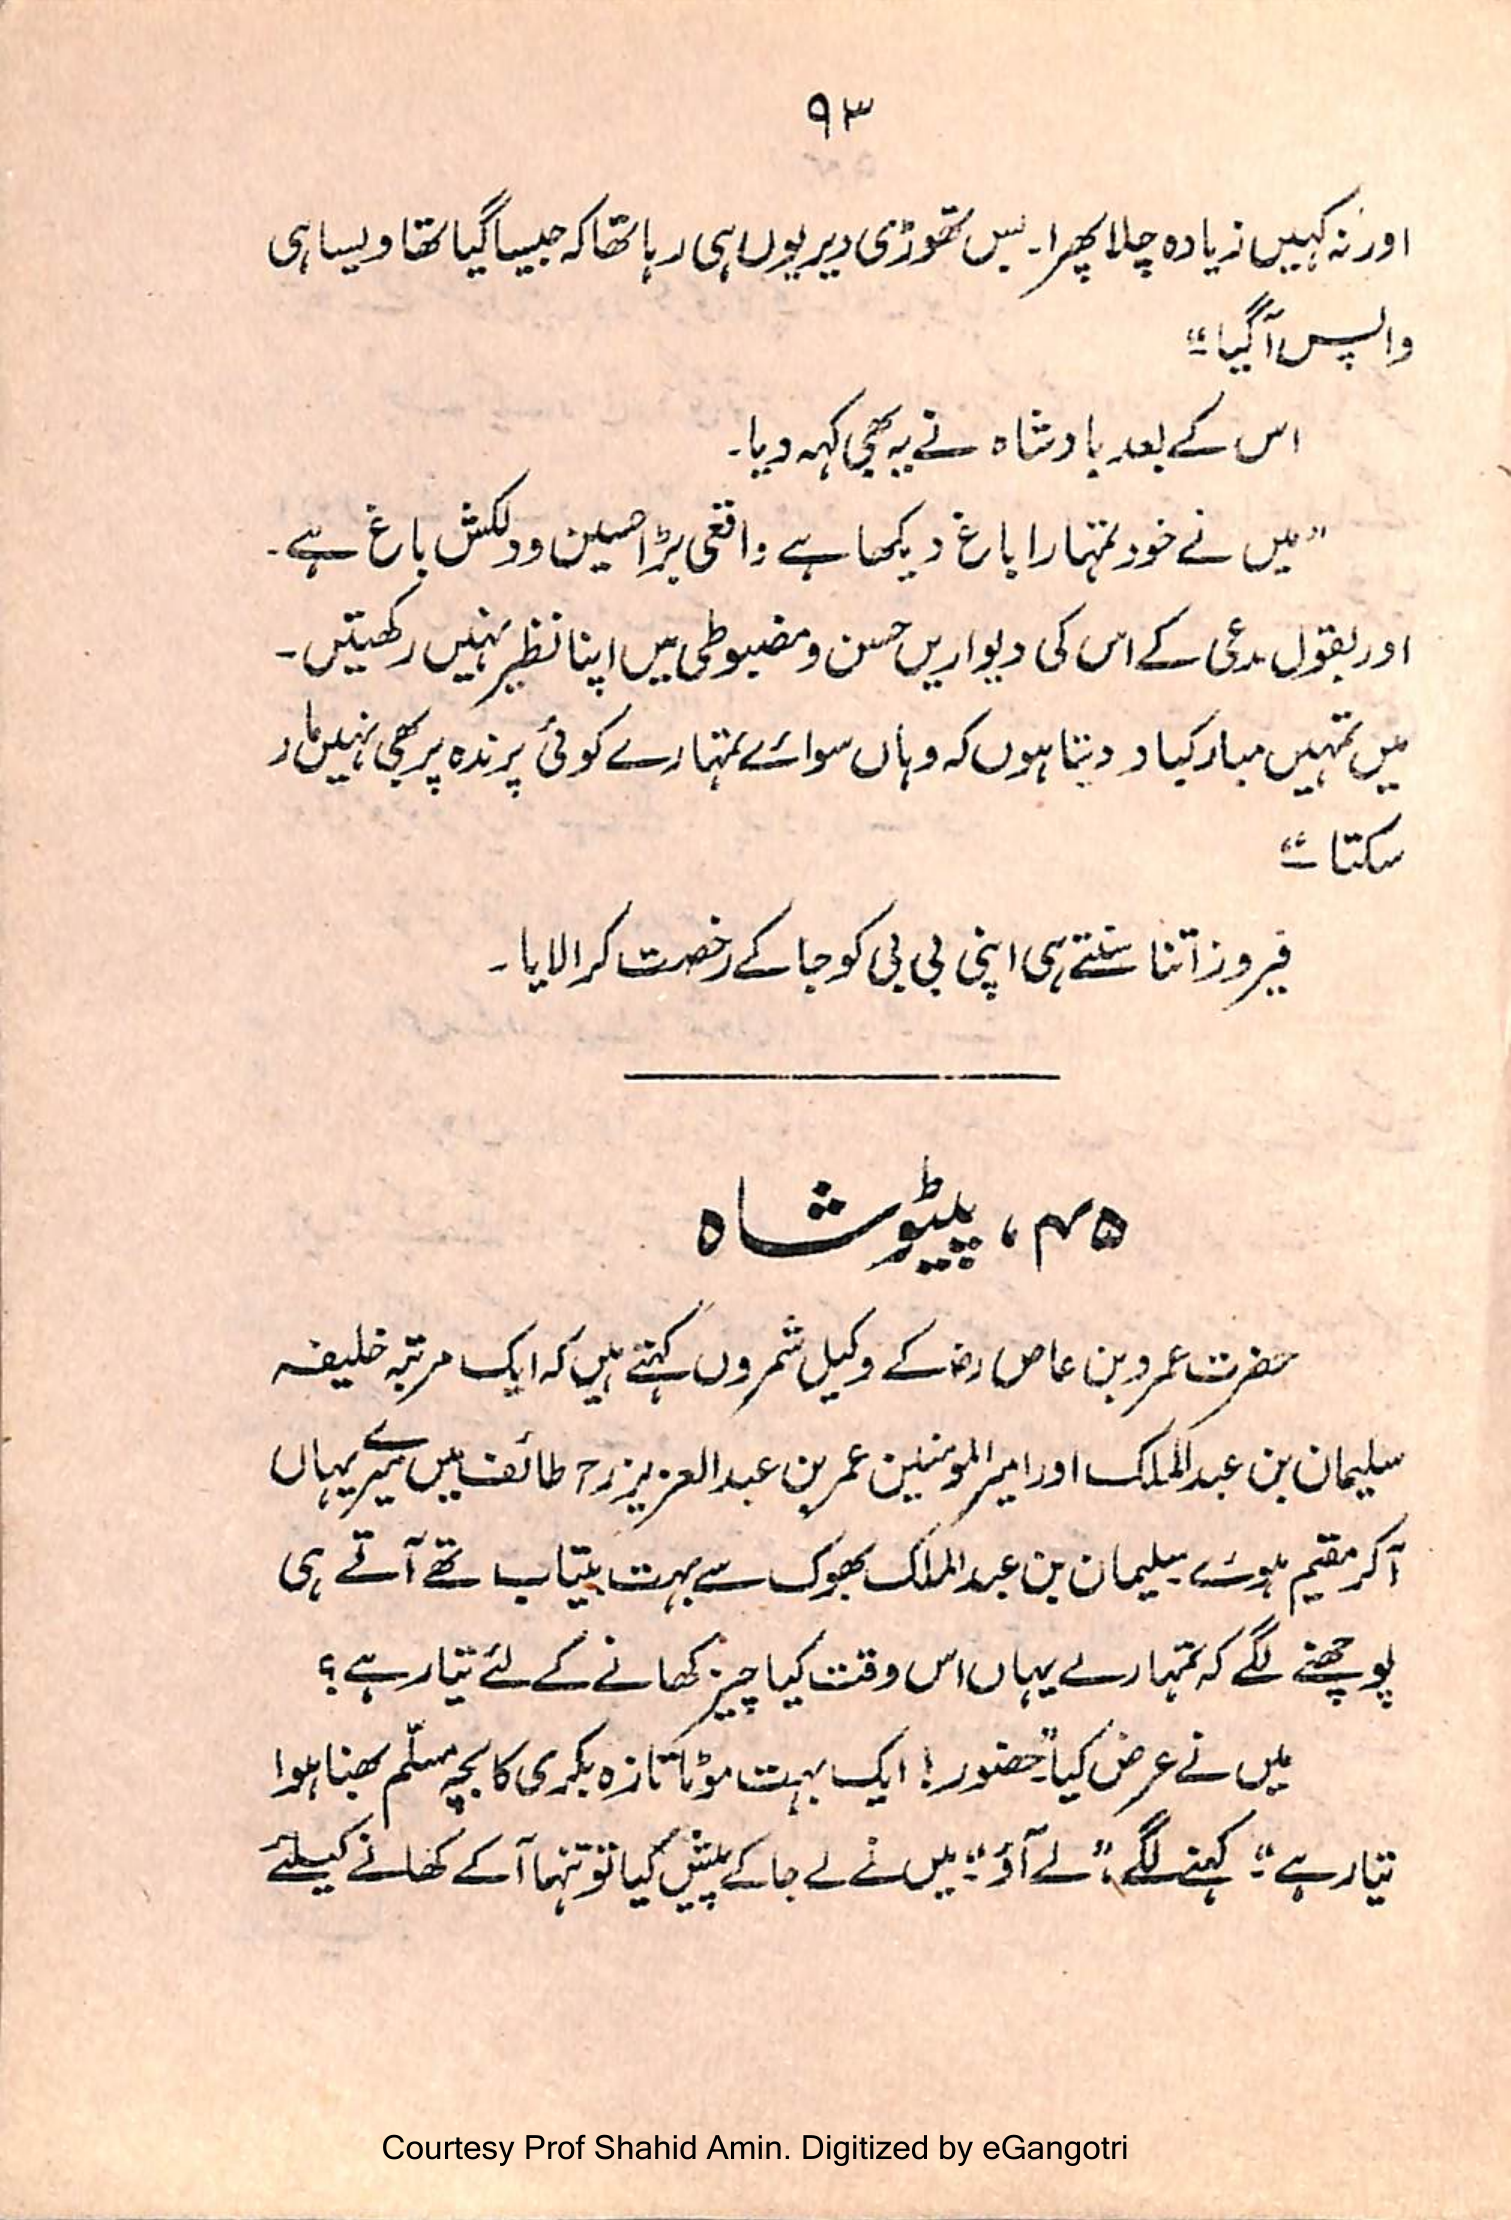 ۹۳
اور نہ کہیں زیادہ چلا پھرا۔ بس تھوڑی دیر یوں ہی رہا تھا کہ جیسا گیا تھا ویسا ہی
واپس آگیا۔"
اس کے بعد بادشاہ نے یہ بھی کہہ دیا۔
"میں نے خود تمہارا باغ دیکھا ہے واقعی بڑا حسین و دلکش باغ ہے۔
اور بقول مدعی کے اس کی دیواریں حسن و مضبوطی میں اپنا نظیر نہیں رکھیتں۔
میں تمہیں مبارکباد دیتا ہوں کہ وہاں سوائے تمہارے کوئی پرندہ پر بھی نہیں مار
سکتا۔"
فیروز اتنا سنتے ہی اپنی بی بی کو جا کے رخصت کرا لایا۔
۴۵، پیٹو شاہ
حضرت عمرو بن عاص رضہ کے وکیل شمرون کہتے ہیں کہ ایک مرتبہ خلیفہ
سلیمان بن عبدالملک اور امیر المومنین عمر بن عبدالعزیز رح طائف میں میرے یہاں
آکر مقیم ہوئے۔ سلیمان بن عبدالملک بھوک سے بہت بیتاب تھے آتے ہی
پوچھنے لگے کہ تمہارے یہاں اس وقت کیا چیز کھانے کے لئے تیار ہے؟
میں نے عرض کیا۔ "حضور! ایک بہت موٹا تازہ بکری کا بچہ مسلّم بھنا ہوا
تیار ہے۔" کہنے لگے، "لے آؤ۔" میں نے لے جا کے پیش کیا تو تنہا آ کے کھانے کیلئے
Courtesy Prof Shahid Amin. Digitized by eGangotri